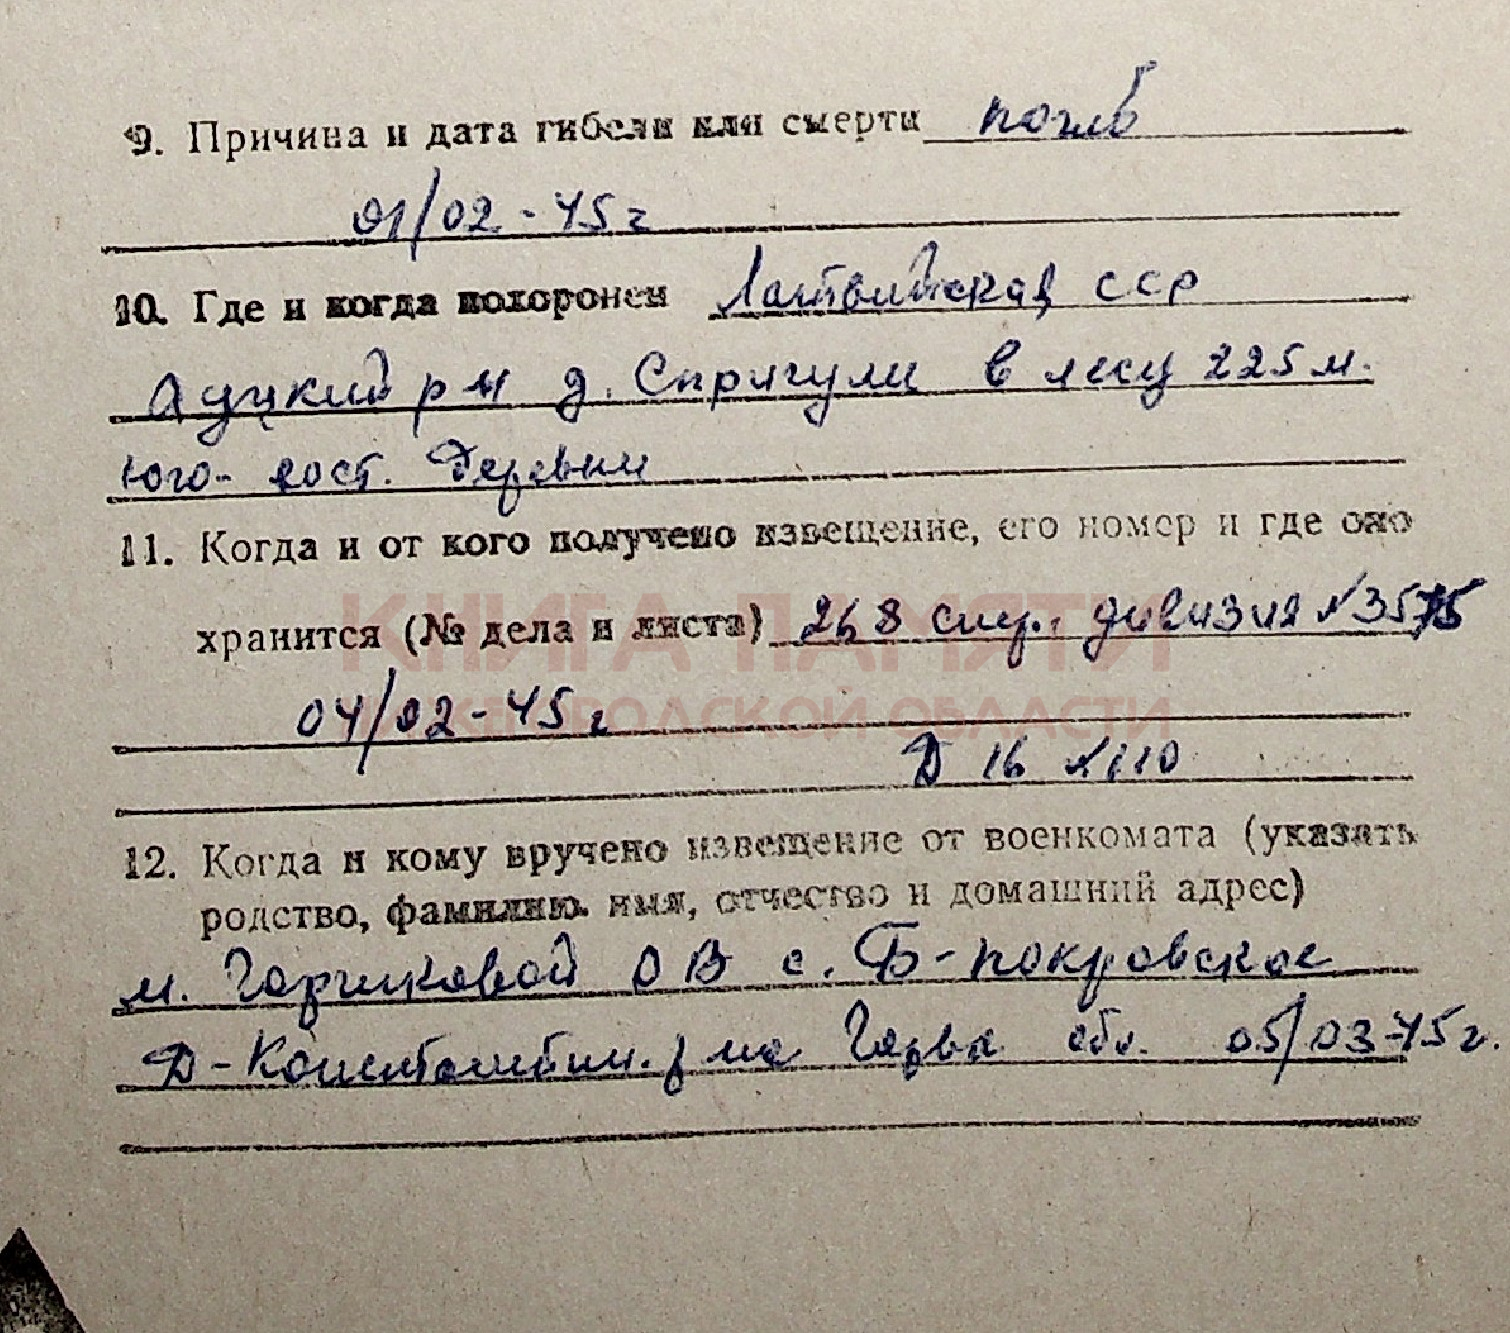 9. Причина и дата гибели или смерти погиб
01/02-45 г
10. Где и когда похоронен Латвийская ССР
Ауцкий р н д. Спригули в лесу 225 м.
юго-вост. деревни
11. Когда и от кого получено извещение, его номер и где оно
хранится (№ дела и листа) 268 стр. дивизия № 3575
КНИГА ПАМЯТИ
04/02-45 г
НИЖЕГОРОДСКОЙ ОБЛАСТИ
Д 16 л 110
12. Когда и кому вручено извещение от военкомата (указать
родство, фамилию. имя, отчество и домашний адрес)
м. ОВ с. Б-покровское
Д-Константин. р на Горьк обл. 05/03-45 г.